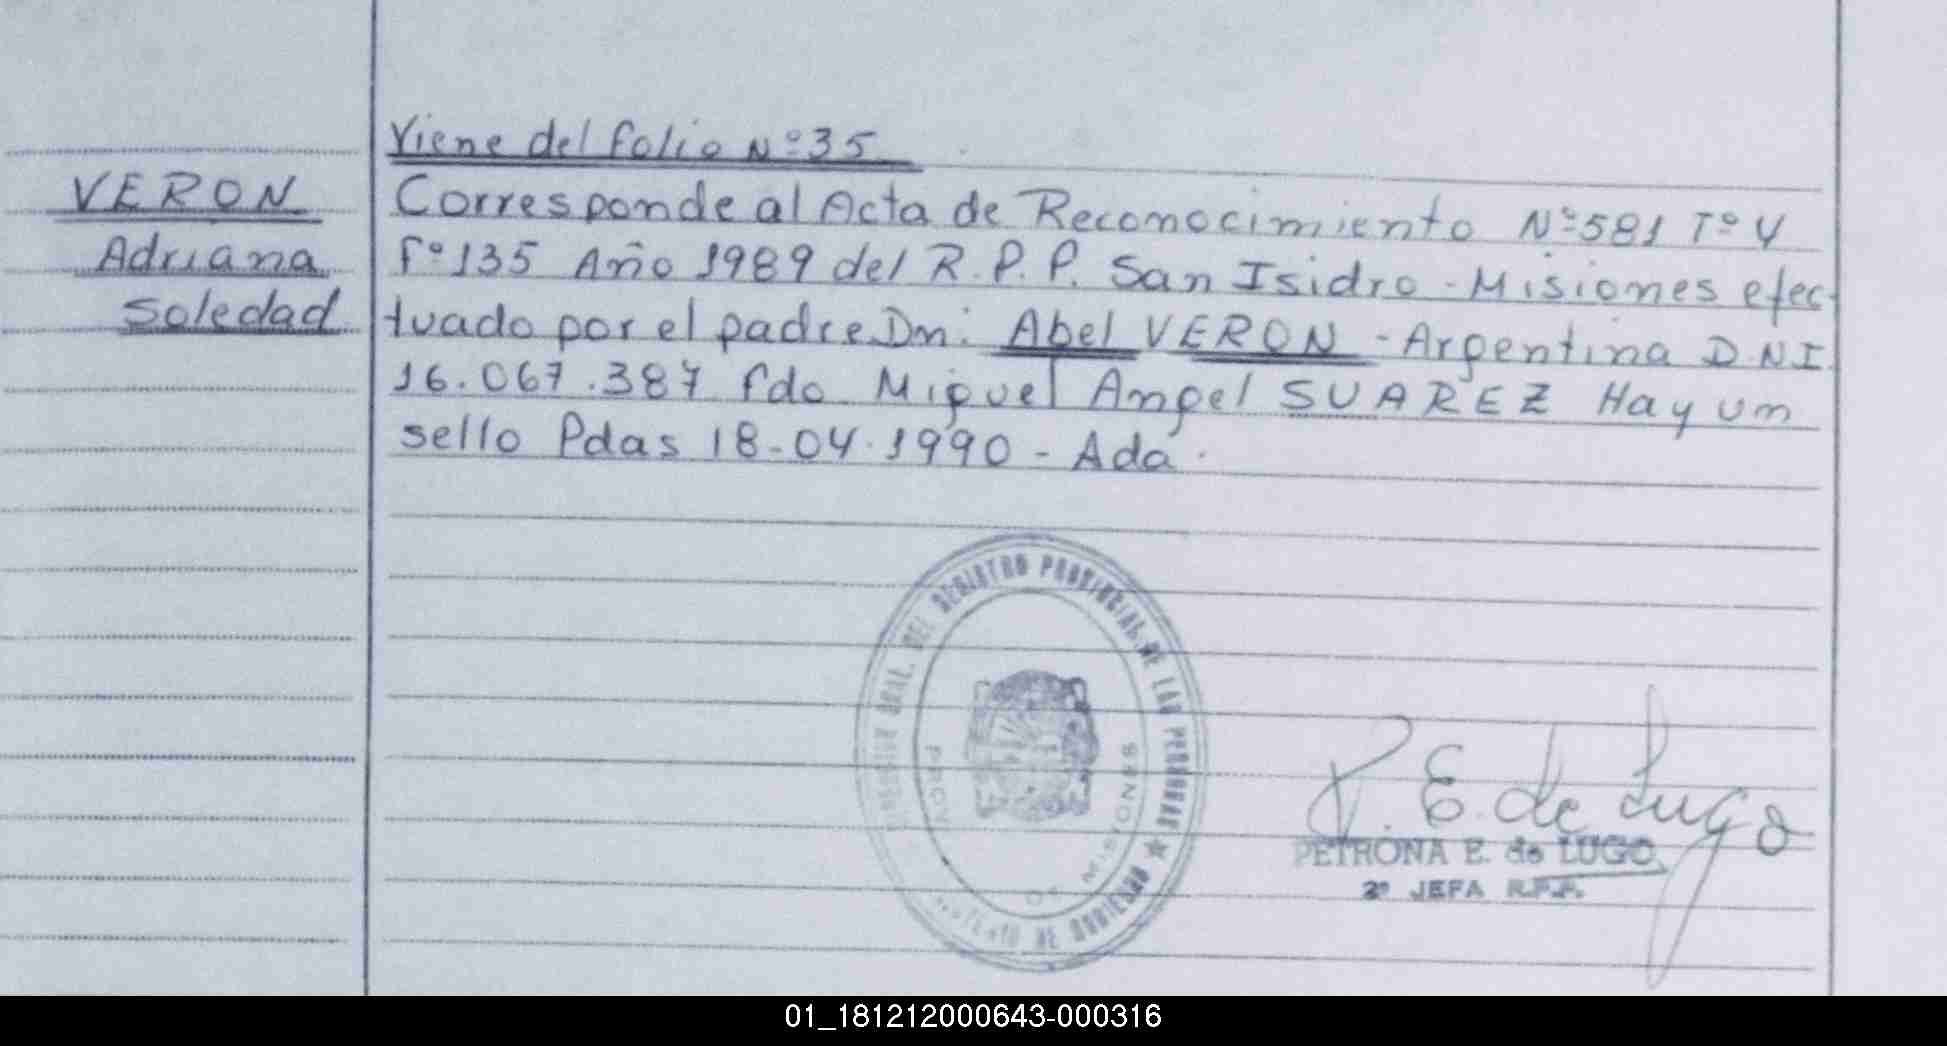 Viene del folio Nº 35
VERON
Adriana
Soledad
Corresponde al Acta de Reconocimiento Nº 581 Tº V
fº 135 Año 1989 del R.P.P. San Isidro - Misiones efec-
tuado por el padre Dn: Abel VERON - Argentina D.N.I.
16.067.387 fdo Miguel Angel SUAREZ Hay un
sello Pdas 18-04-1990 - Ada.
GRAL. DEL REGISTRO PROVINCIAL DE LAS PERSONAS ★
DE GOBIERNO
PROV.
DE MISIONES
P. E. de Lugo
PETRONA E. de LUGO
2º JEFA R.P.P.
01_181212000643-000316